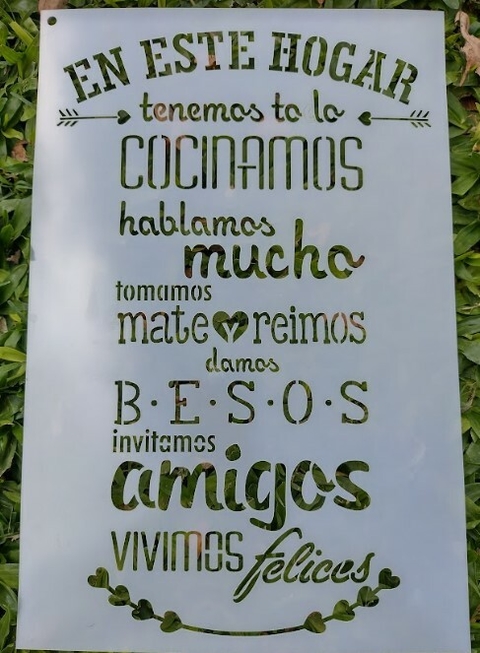 EN ESTE HOGAR
tenemos to lo
COCINAMOS
hablamos
mucho
tomamos
mate y reimos
damos
B·E·S·O·S
invitamos
amigos
VIVIMOS felices